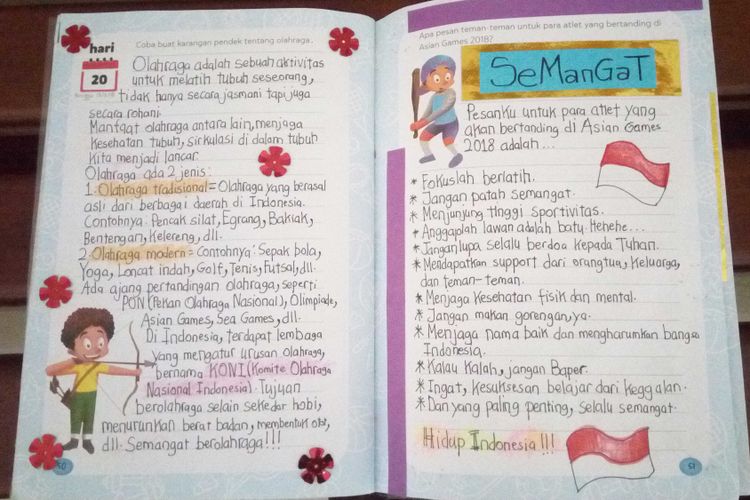 hari
20
Coba buat karangan pendek tentang olahraga.
Olahraga adalah sebuah aktivitas
untuk melatih tubuh seseorang,
tidak hanya secara jasmani tapi juga
secara rohani.
Manfaat olahraga antara lain, menjaga
kesehatan tubuh, sirkulasi di dalam tubuh
kita menjadi lancar.
Olahraga ada 2 jenis:
1. Olahraga tradisional = Olahraga yang berasal
asli dari berbagai daerah di Indonesia.
Contohnya: Pencak silat, Egrang, Bakiak,
Bentengan, Kelereng, dll.
2. Olahraga modern = Contohnya: Sepak bola,
Yoga, Loncat indah, Golf, Tenis, Futsal, dll.
Ada ajang pertandingan olahraga, seperti
PON (Pekan Olahraga Nasional), Olimpiade,
Asian Games, Sea Games, dll.
Di Indonesia, terdapat lembaga
yang mengatur urusan olahraga,
bernama KONI (Komite Olahraga
Nasional Indonesia). Tujuan
berolahraga selain sekedar hobi,
menurunkan berat badan, membentuk otot,
dll. Semangat berolahraga!!!
50
Apa pesan teman-teman untuk para atlet yang bertanding di
Asian Games 2018?
SeManGaT
Pesanku untuk para atlet yang
akan bertanding di Asian Games
2018 adalah...
* Fokuslah berlatih.
* Jangan patah semangat.
* Menjunjung tinggi sportivitas.
* Anggaplah lawan adalah batu. Hehehe...
* Jangan lupa selalu berdoa kepada Tuhan.
* Mendapatkan support dari orangtua, keluarga,
dan teman-teman.
* Menjaga kesehatan fisik dan mental.
* Jangan makan gorengan, ya.
* Menjaga nama baik dan mengharumkan bangsa
Indonesia.
* Kalau kalah, jangan Baper.
* Ingat, kesuksesan belajar dari kegagalan.
* Dan yang paling penting, selalu semangat.
Hidup Indonesia!!!
51